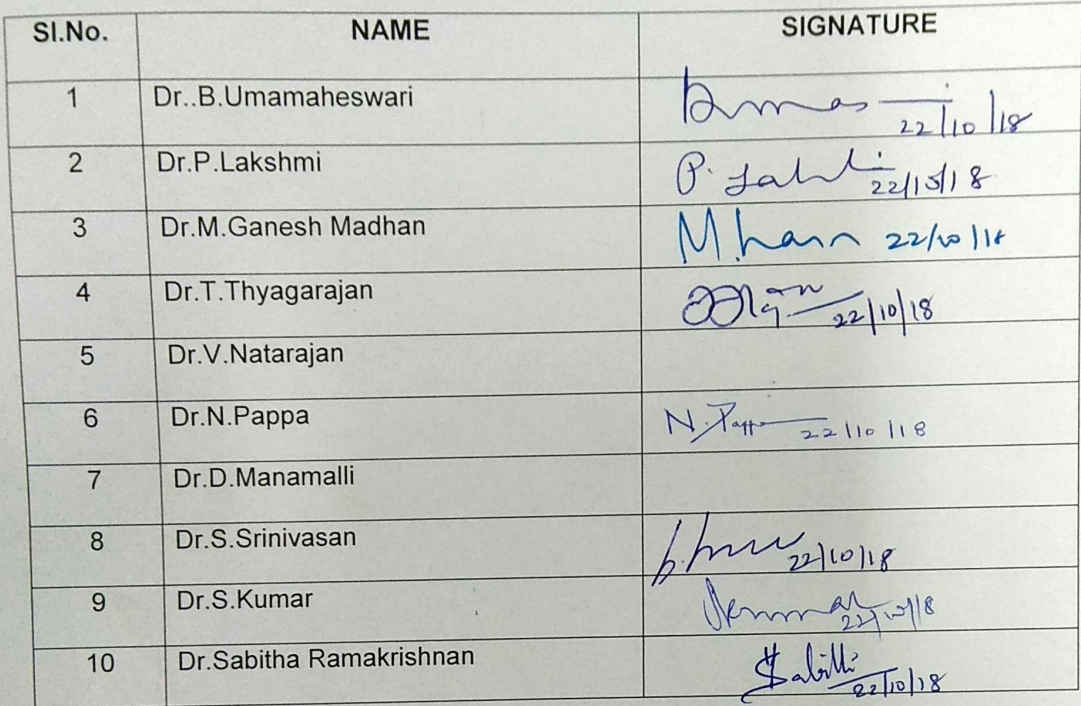 SI.No. NAME SIGNATURE
1 Dr..B.Umamaheswari 22/10/18
2 Dr.P.Lakshmi P. 22/10/18
3 Dr.M.Ganesh Madhan M. 22/10/18
4 Dr.T.Thyagarajan 22/10/18
5 Dr.V.Natarajan
6 Dr.N.Pappa N.Pappa 22/10/18
7 Dr.D.Manamalli
8 Dr.S.Srinivasan 22/10/18
9 Dr.S.Kumar 22/10/18
10 Dr.Sabitha Ramakrishnan 22/10/18